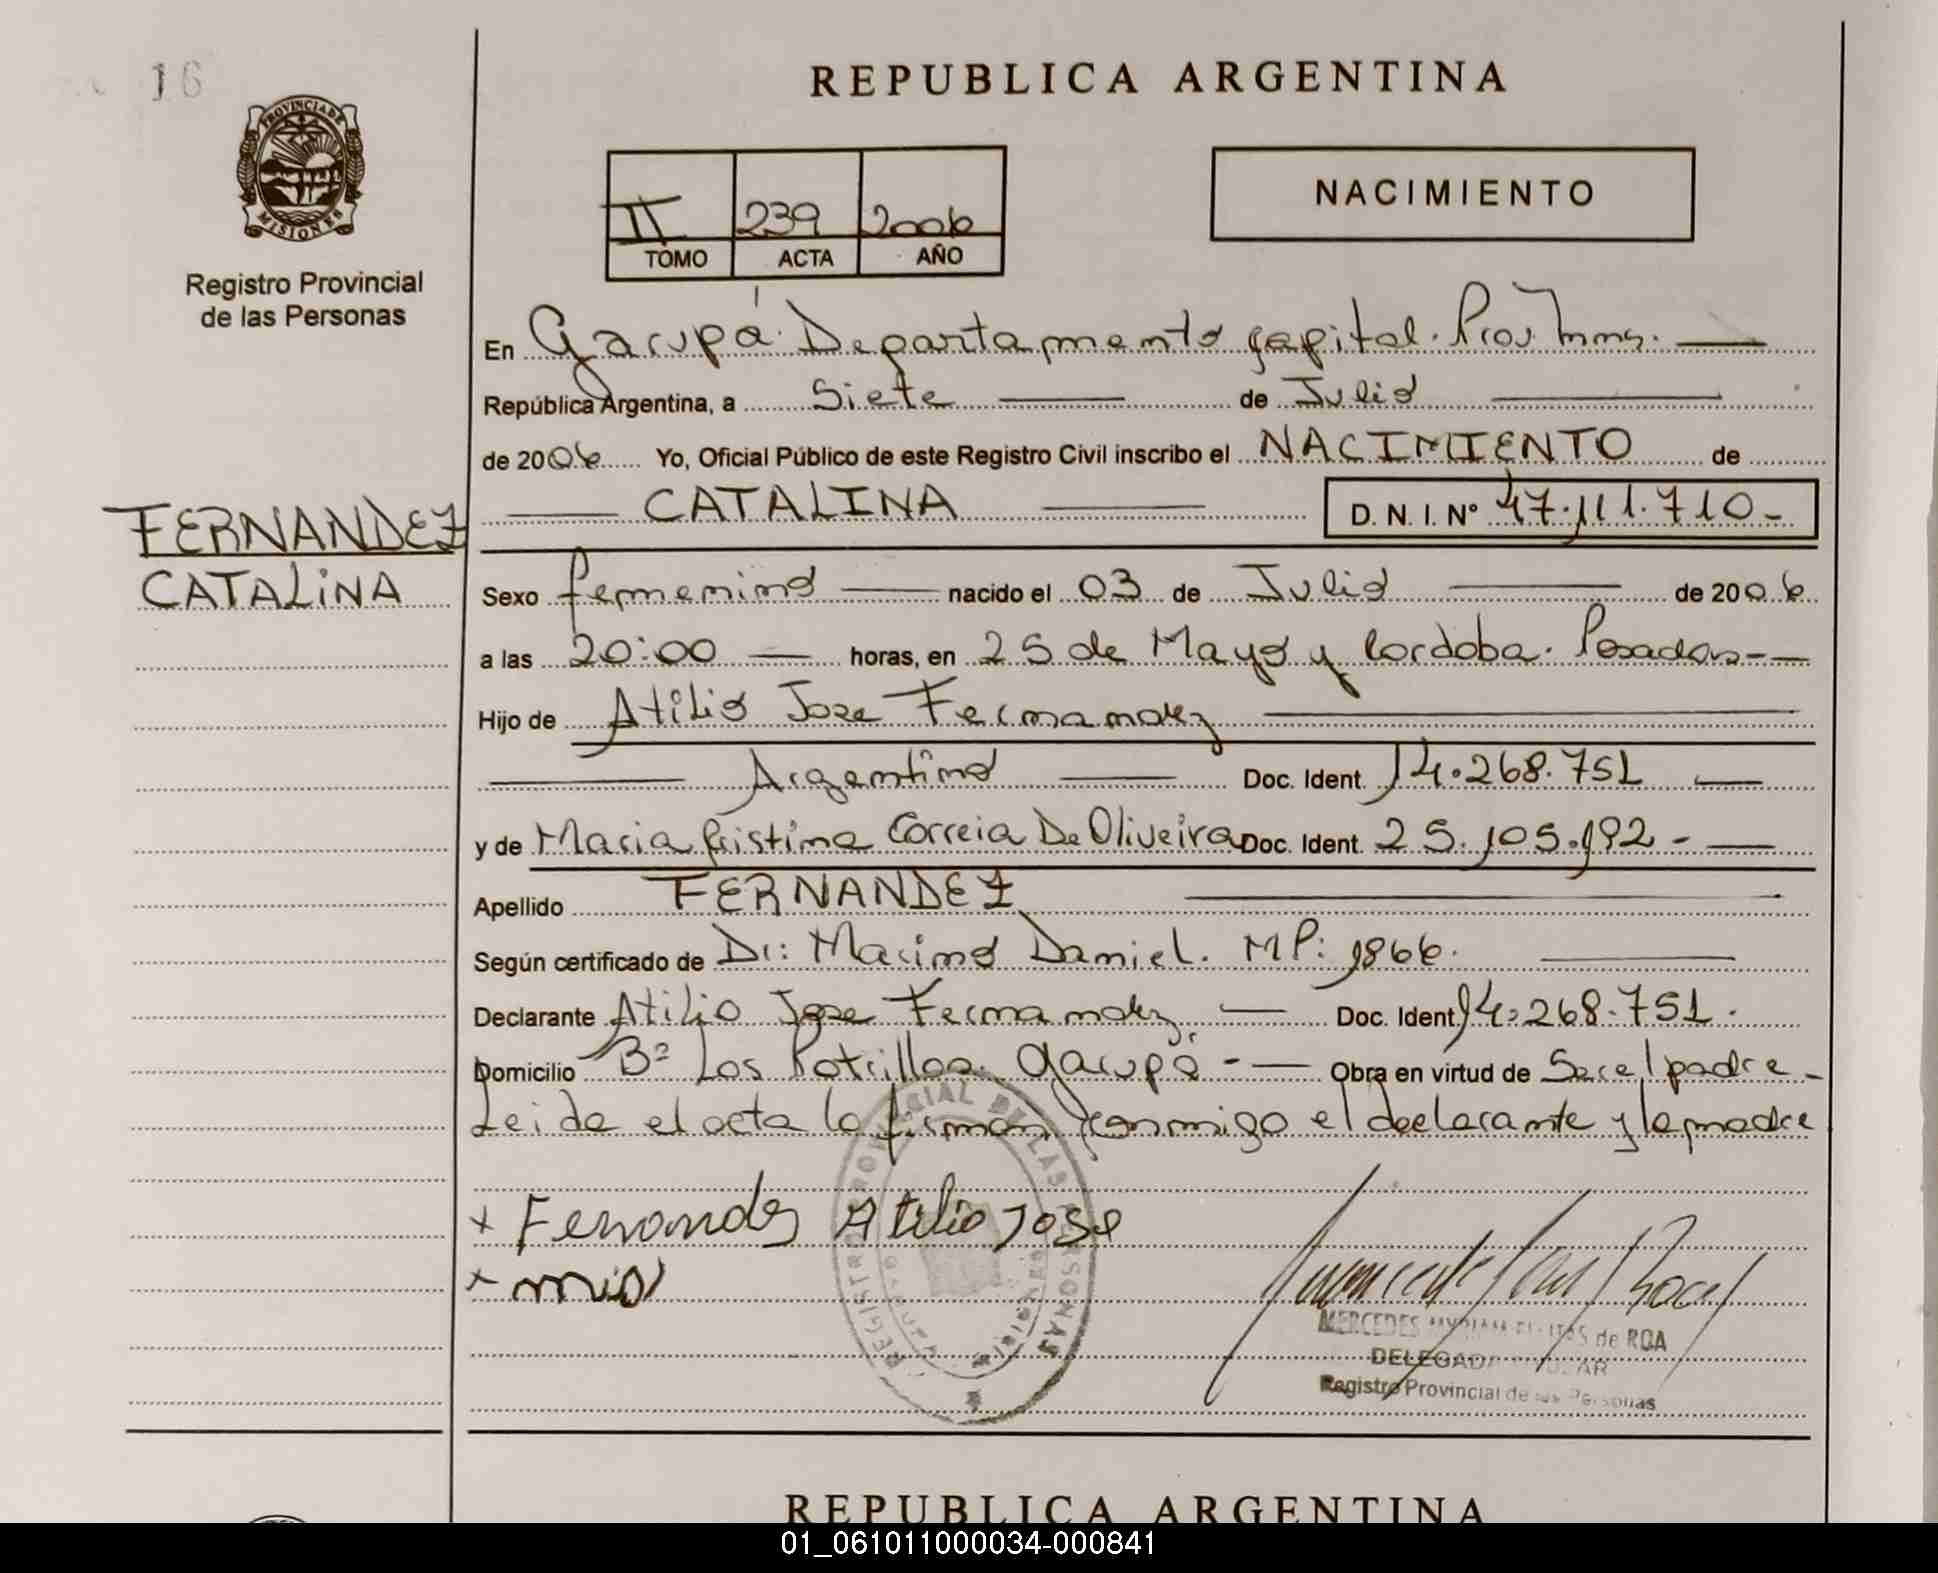 16
REPUBLICA ARGENTINA
PROVINCIA DE
MISIONES
Registro Provincial
de las Personas
II 239 2006
TOMO ACTA AÑO
NACIMIENTO
En Garupá. Departamento Capital. Prov. Mnes.
República Argentina, a Siete de Julio
de 2006 Yo, Oficial Público de este Registro Civil inscribo el NACIMIENTO de
CATALINA D. N. I. Nº 47.111.710-
FERNANDEZ
CATALINA
Sexo femenino nacido el 03 de Julio de 2006
a las 20:00 horas, en 25 de Mayo y Cordoba. Posadas-
Hijo de Atilio Jose Fernandez
Argentino Doc. Ident. 14.268.751
y de Maria Cristina Correia De Oliveira Doc. Ident. 25.105.192-
Apellido FERNANDEZ
Según certificado de Dr: Macimo Daniel. MP: 1866.
Declarante Atilio Jose Fernandez Doc. Ident. 14.268.751.
Domicilio Bº Los Potrillos. Garupá - Obra en virtud de Ser el padre-
Leida el acta la firman conmigo el declarante y la madre
x Fernandez Atilio Jose
x
REGISTRO PROVINCIAL DE LAS PERSONAS
MERCEDES MYRIAM de ROA
DELEGADA TITULAR
Registro Provincial de las Personas
REPUBLICA ARGENTINA
01_061011000034-000841